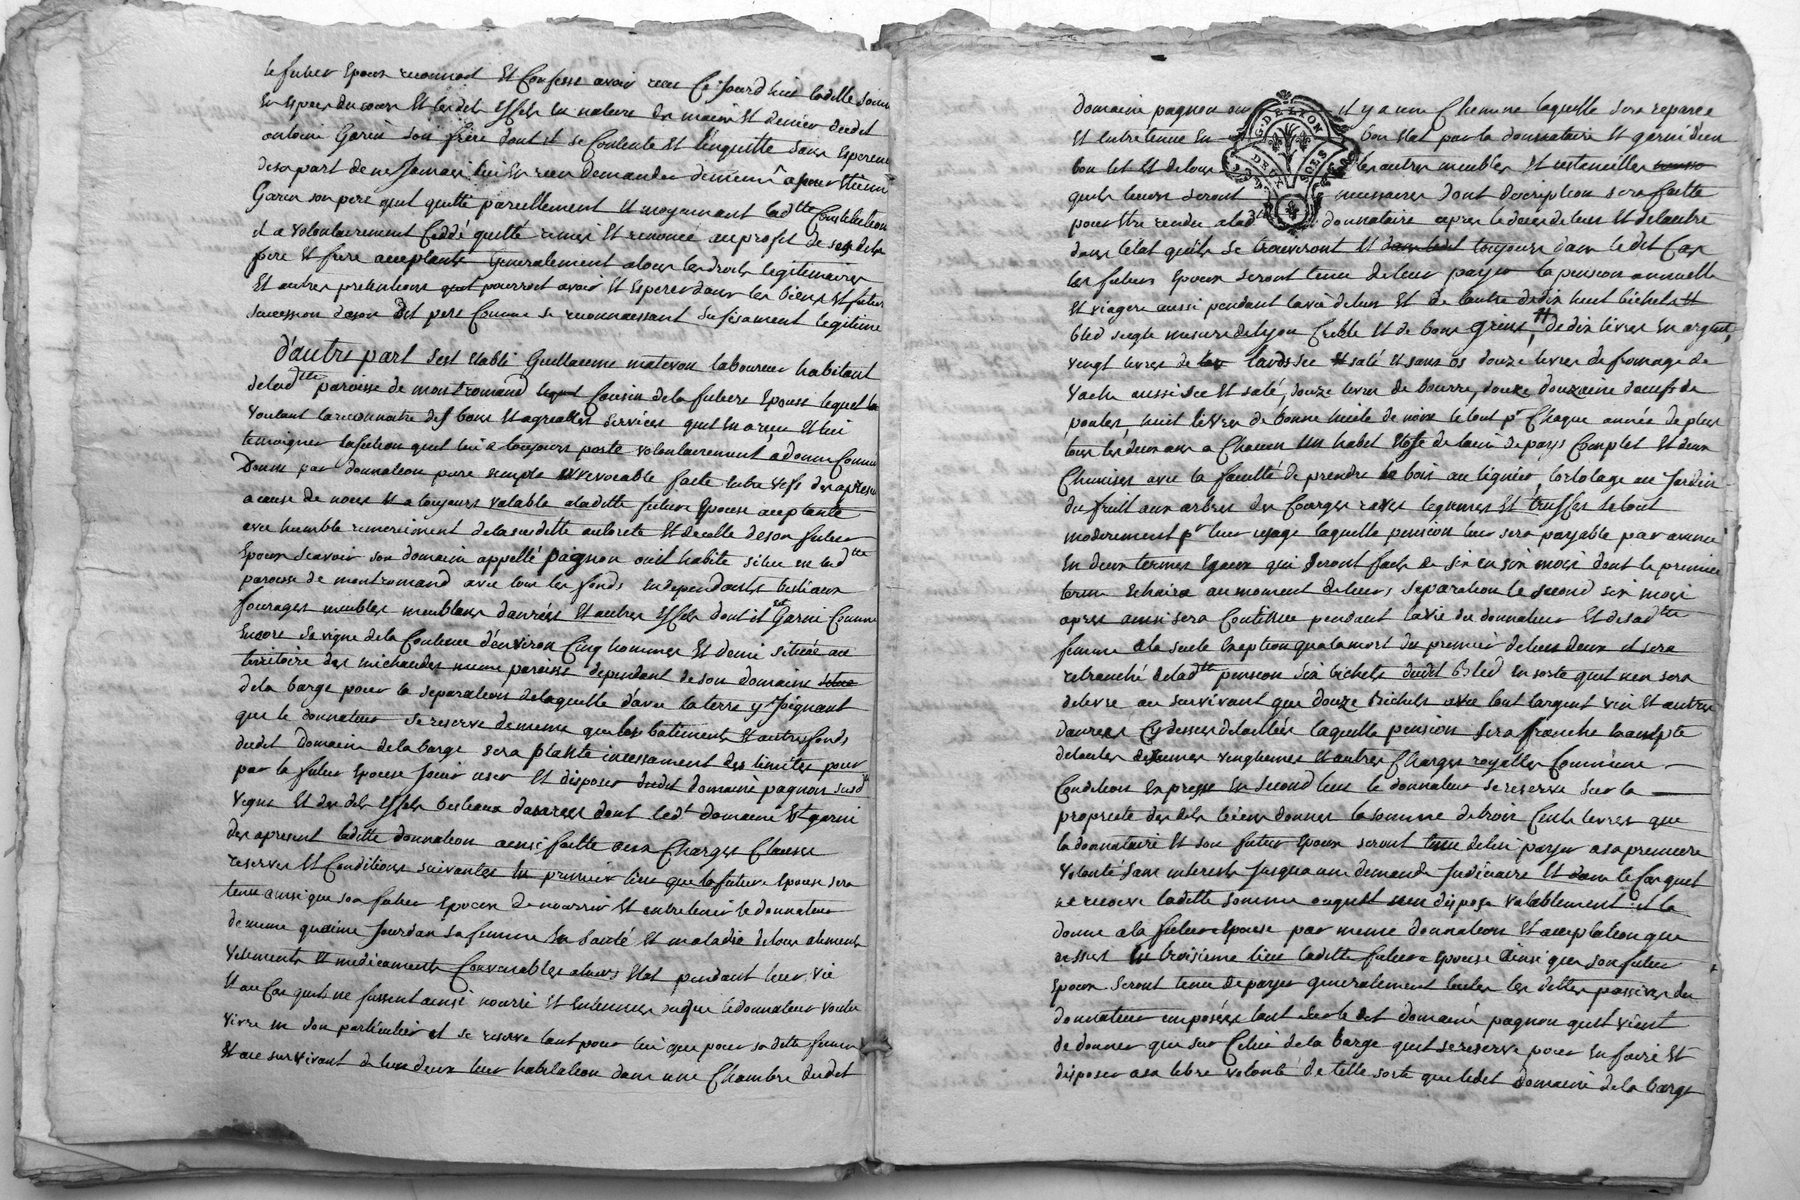 le futur Epoux reconnoit Et Confesse avoir recu Ce jourd huit ladille somme
En Especes du cours Et lesdits Effets En nature des mains Et denier dudet
antoine Garin son frere dont il se Contente Et l'enquitte sans Esperence
desa part de ne Jamais lui En rien demander dememe a Etienne
Garin son pere quil quitte pareillement Et moyennant lad.tte Constitution
il a volontairement Ceddé quitté remis Et renoncé au profit de sesdits
pere Et frere acceptants Generalement atous les droits legitimaires
Et autres pretentions quil pourroit avoir Et Esperer dans les biens Et future
succession deson Dit pere Comme se reconnaissant sufisament legitimé
D'autre part s'est Etabli Guillaume matevon laboureur habitant
delad.tte paroisse de montromand Cousin dela future Epouse lequel
voulant la reconnoitre des bons Et agreables services quil En a reçu Et lui
temoigner lafection quil lui a toujours porté volontairement a donné Comme
Donne par donnation pure simple irrevocable faite Entre vifs des apresent
a cause de noces Et a toujours valable aladitte future Epouse acceptante
avec humble remerciment delasusditte autorité Et decelle deson futur
Epoux scavoir son domaine appellé pagnon ouil habite situé En lad.tte
paroisse de montromand avec tous les fonds En dependants bestiaux
fourages meubles meublans danrées Et autres Effets dont il Est Garni Comme
Encore sa vigne dela Contenue d'environ Cinq hommes Et demi située au
territoire des michaudes meme paroisse dependant de son domaine situé
dela barge pour la separation delaquelle d'avec la terre y Joignant
que le donnateur se reserve demême que les batiments Et autres fonds
dudit Domaine dela barge sera planté incessament des limites pour
par la future Epouse Jouir user Et disposer dudit domaine pagnon susd.
vigne Et desdits Effets bestiaux danrées dont led.t domaine Est garni
des apresent laditte donnation ainsi faitte aux Charges Clauses
reserves Et Conditions suivantes En premier lieu que la future Epouse sera
tenue ainsi que son futur Epoux de nourrir Et entretenir le donnateur
de meme que Jourdan sa femme En santé Et maladie de tous aliments
vetements Et medicaments Convenables aleurs Etat pendant leur vie
Et au Cas quils ne fussent ainsi nourri Et Entretenus ou que le donnateur voulut
vivre En son particulier il se reserve tant pour lui que pour sa ditte femme
Et au survivant de Eux deux leur habitation dans une Chambre dudit
domaine pagnon ou il y a une Cheminé laquelle sera reparée
Et Entretenue En bon Etat par la donnataire Et garni d'un
bon lit Et de tous les autres meubles Et ustencilles
qui leurs seront necessaires dont description sera faitte
pour Etre rendu alad.tte donnataire apres le deces de lun Et delautre
dans letat quils se trouveront Et toujours dans le dit Cas
les futurs Epoux seront tenu de leur payer la pension annuelle
Et viagere aussi pendant la vie delun Et de lautre de dix huit bichets
bled seigle mesure de lyon Criblé Et de bons grins, de dix livres En argent,
vingt livres de lards sec Et salé Et sans os douze livres de fromage de
vache aussi sec Et salé, douze livres de beurre, douze douzaine doeufs de
poules, huit livres de bonne huile de noix le tout p.r Chaque année de plus
tous les deux ans a Chacun un habit Etofe de laine de pays Complet Et deux
Chemises avec la faculté de prendre du bois au legnier, lortolage au Jardin
du fruit aux arbres des Courges raves legumes Et truffes le tout
moderement p.r leur usage laquelle pension leur sera payable par avance
En deux termes Egaux qui seront faits de six en six mois dont le premier
terme Echaira au moment de leurs separation le second six mois
apres ainsi sera Continué pendant la vie du donnateur Et desad.tte
femme ala seule Exeption quala mort du premier deleus deux il sera
retranché delad.tte pension six bichets dudit Bled En sorte quil n'en sera
delivre au survivant que douze Bichets avec tout largent vin Et autres
danrées Cy dessus detaillées laquelle pension sera franche Et
de toutes tailles vingtiemes Et autres Charges royalles Comme
Condition Expresse En second lieu le donnateur se reserve sur la
propriete desdits biens donnés la somme de trois Cents livres que
la donnataire Et son futur Epoux seront tenu de lui payer a sa premiere
volonté sans interets Jusqua une demande Judiciaire Et dans le Cas quil
ne recoive laditte somme ou quil nen dispose valablement il la
donne a la future Epouse par meme donnation Et acceptation que
dessus En troisieme lieu laditte future Epouse ainsi que son futur
Epoux seront tenu de payer generalement toutes les dettes passives du
donnateur imposées tant sur le dit domaine pagnon quil vient
de donner que sur Celui dela barge quil se reserve pour En faire Et
disposer asa libre volonté de telle sorte que ledit Domaine dela barge
G. DE LYON
DEUX SOLS